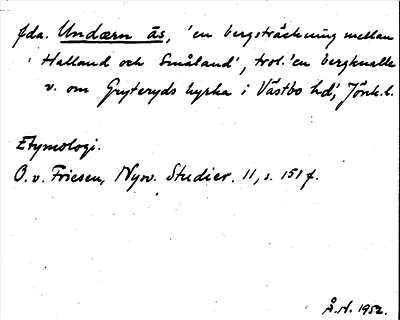 fda. Undærn ås, 'en bergsträckning mellan
Halland och Småland', trol. 'en bergknalle
v. om Gryteryds kyrka i Västbo hd', Jönk. l.
Etymologi.
O. v. Friesen, Nysv. Studier. 11, s. 151 f.
Å. N. 1952.